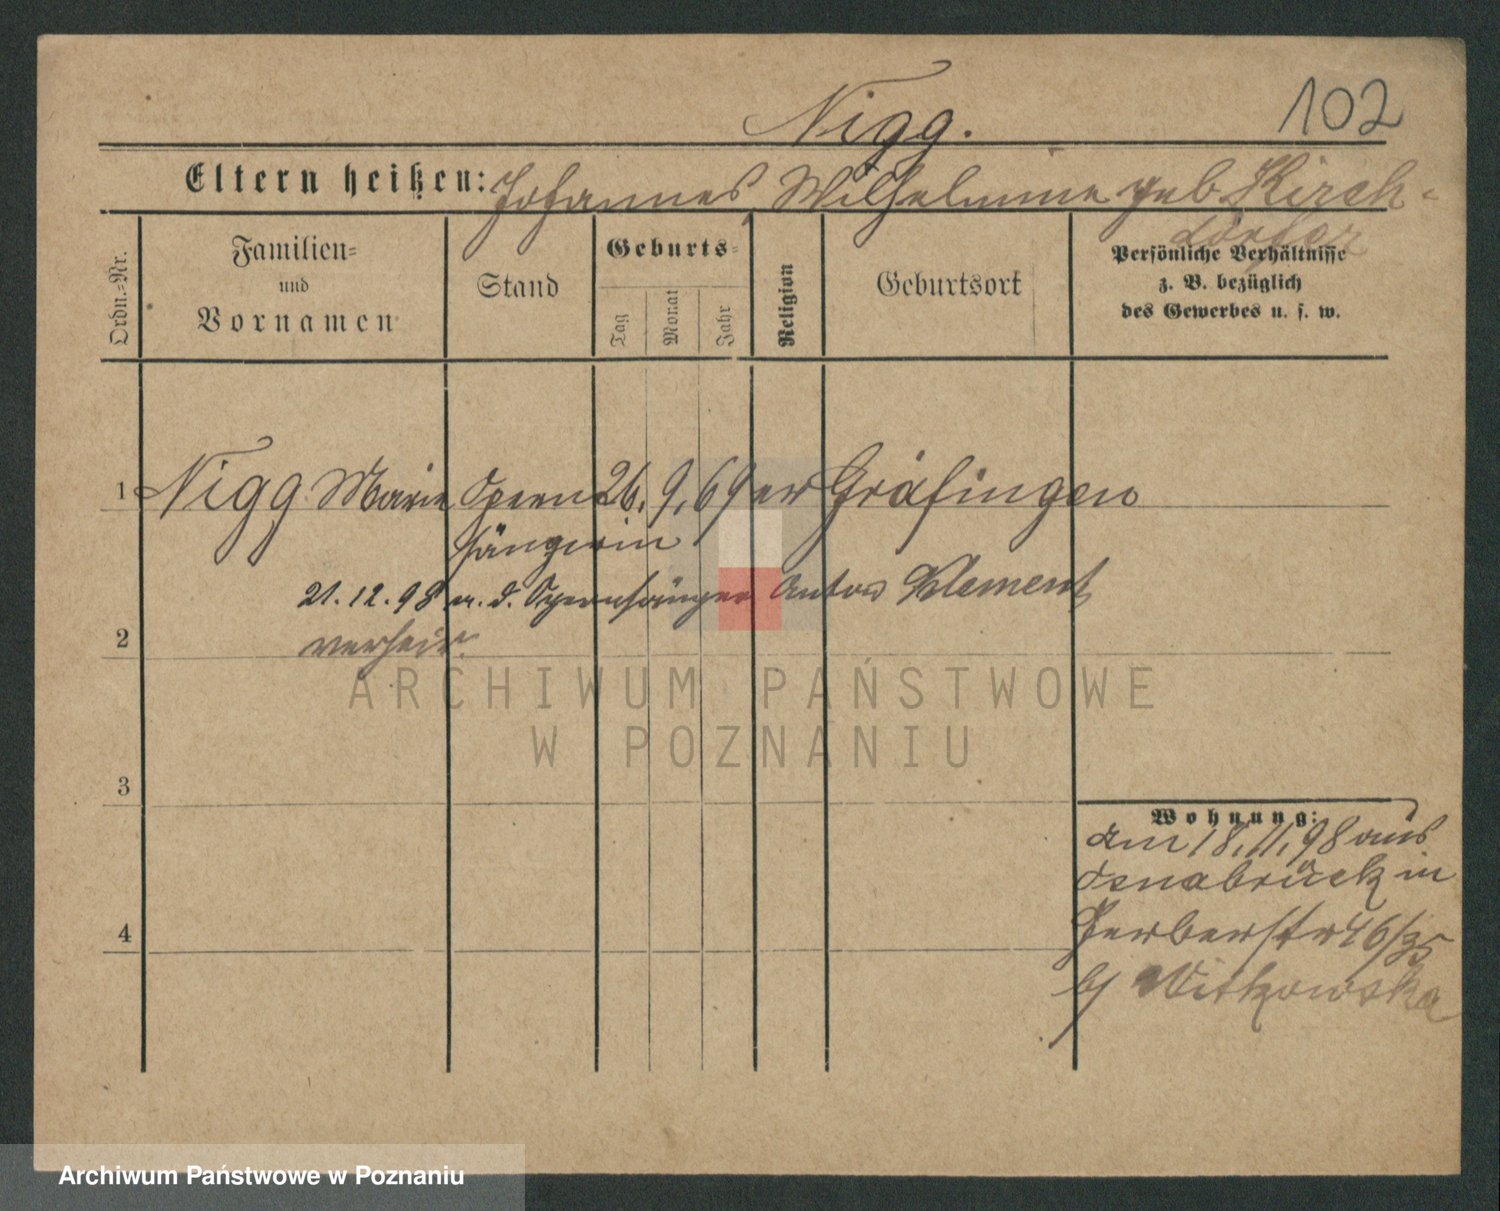 102
Nigg.
Eltern heißen: Johannes, Wilhelmine geb Kirch-
dörfer
Ordn.-Nr.
Familien-
und
Vornamen
Stand
Geburts-
Tag
Monat
Jahr
Religion
Geburtsort
Persönliche Verhältnisse
z. B. bezüglich
des Gewerbes u. s. w.
1 Nigg Marie Opern 26. 9. 69 ev Gräfingen
sängerin
21. 12. 98 m. d. Opernsänger Anton Klement
2 verheir.
3
4
Wohnung:
am 18. 11. 98 aus
Osnabrück in
Gerberstr 46/35
b/ Witkowska
ARCHIWUM PAŃSTWOWE
W POZNANIU
Archiwum Państwowe w Poznaniu